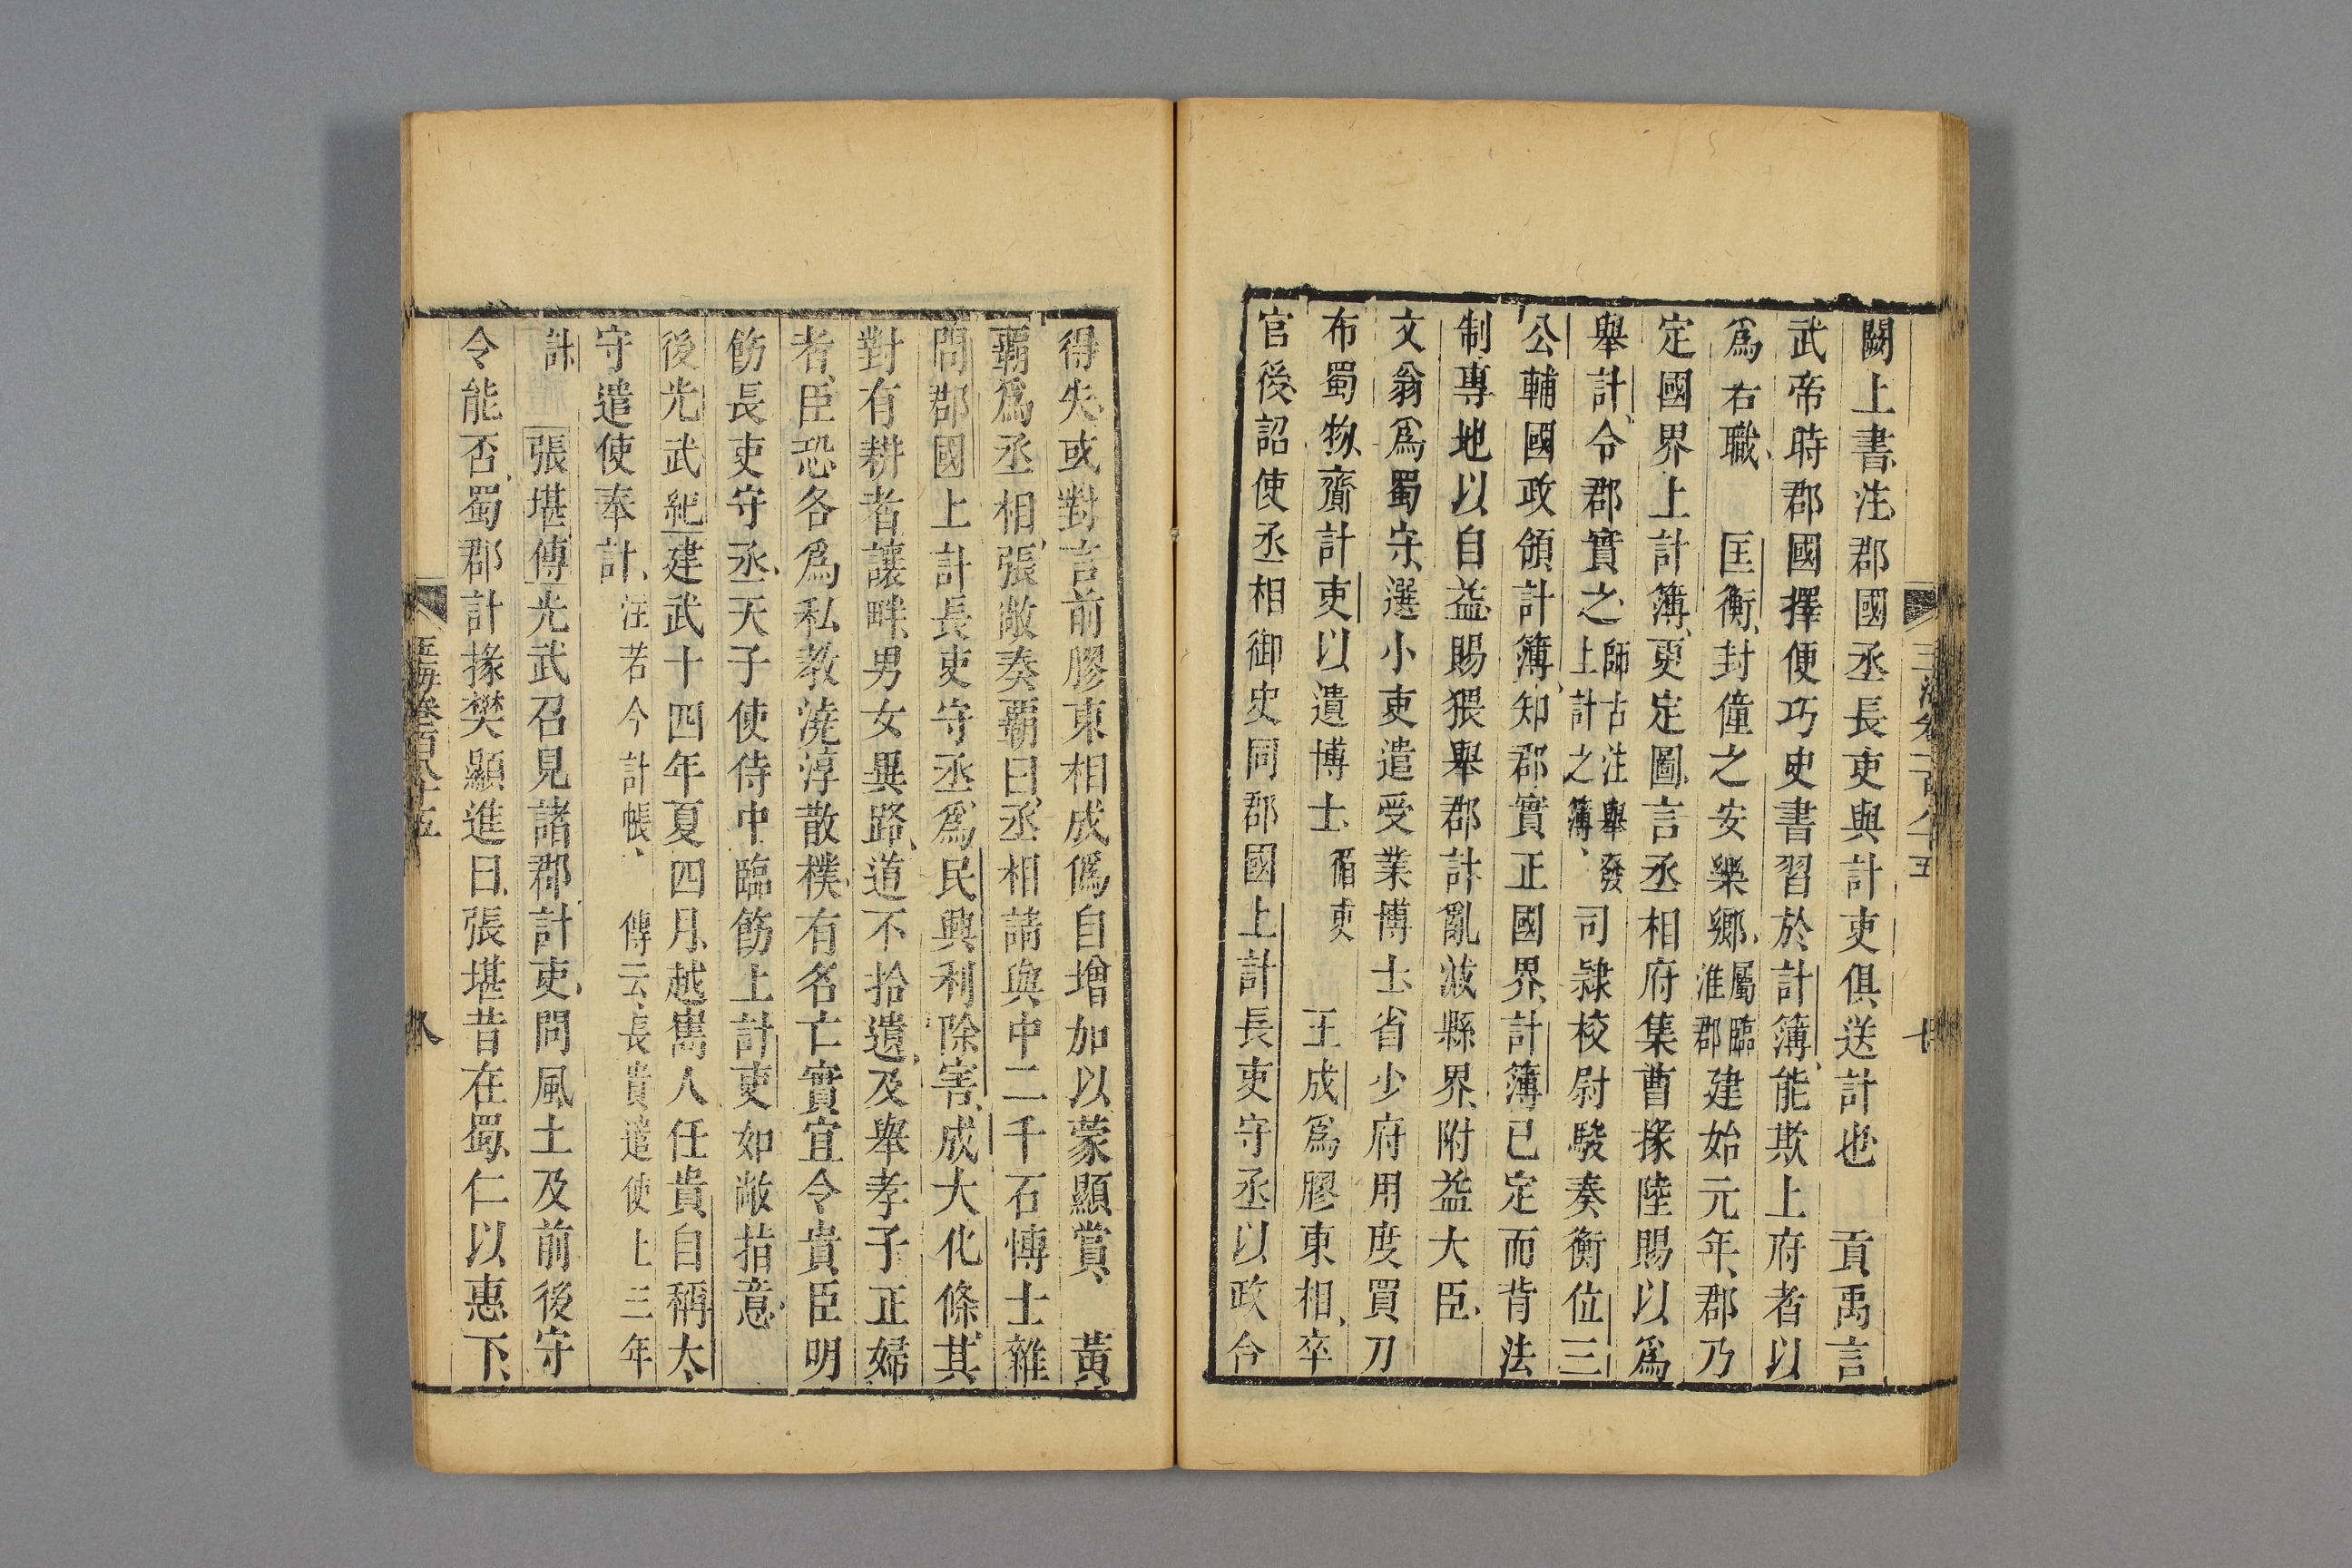 闕上書注郡國丞長吏與計吏俱送計也　貢禹言
武帝時郡國擇便巧史書習於計簿能欺上府者以
爲右職　匡衡封僮之安樂鄉屬臨淮郡建始元年郡乃
定國界上計簿更定圖言丞相府集曹掾陸賜以爲
舉計令郡實之師古注舉發上計之簿司隷校尉駿奏衡位三
公輔國政領計簿知郡實正國界計簿已定而背法
制專地以自益賜猥舉郡計亂減縣界附益大臣
文翁爲蜀守選小吏遣受業博士省少府用度買刀
布蜀物齎計吏以遺博士循吏　王成爲膠東相卒
官後詔使丞相御史問郡國上計長吏守丞以政令
得失或對言前膠東相成僞自增加以蒙顯賞　黃
霸爲丞相張敞奏霸曰丞相請與中二千石博士雜
問郡國上計長吏守丞爲民興利除害成大化條其
對有耕者讓畔男女異路道不拾遺及舉孝子正婦
者臣恐各爲私教澆淳散樸有名亡實宜令貴臣明
飭長吏守丞天子使侍中臨飭上計吏如敞指意
後光武紀建武十四年夏四月越嶲人任貴自稱太
守遣使奉計注若今計帳　傳云長貴遣使上三年
計　張堪傳光武召見諸郡計吏問風土及前後守
令能否蜀郡計掾樊顯進曰張堪昔在蜀仁以惠下
玉海卷一百八十五　八